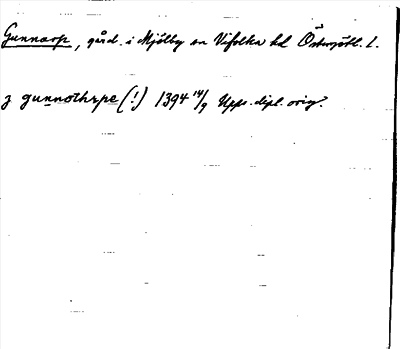 Gunnarp, gård i Mjölby sn Vifolka hd Östergötl. l.
z gunnothrpe (!) 1394 14/9 Upps. dipl. orig.